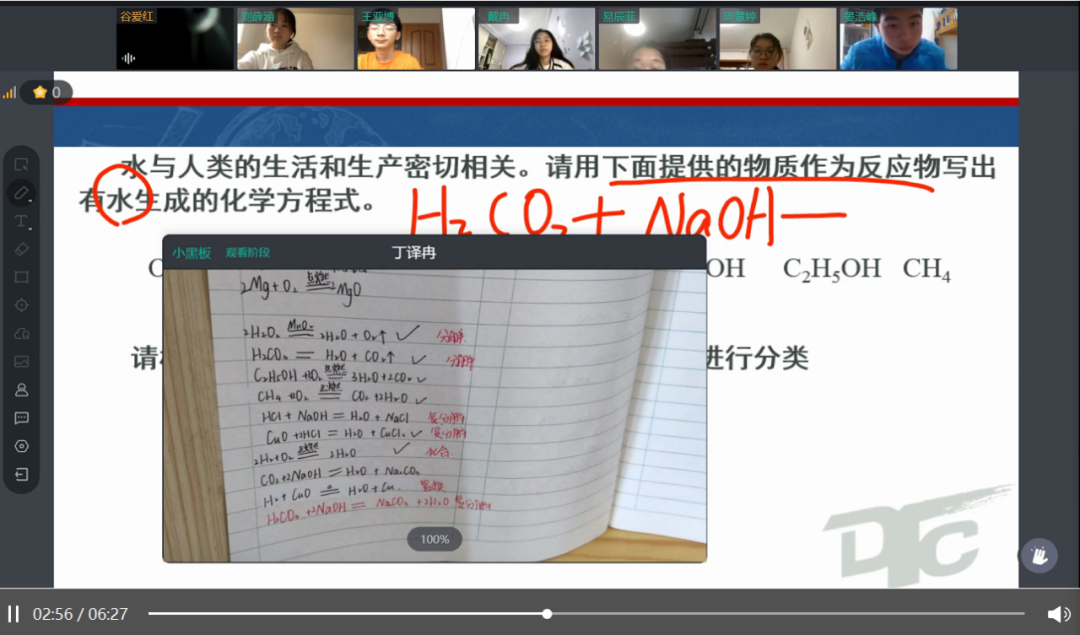 谷爱红 刘薛涵 王亚博 戴冉 易辰菲 周景婷 晏浩峰
0
水与人类的生活和生产密切相关。请用下面提供的物质作为反应物写出
有水生成的化学方程式。
H₂CO₃+NaOH—
OH C₂H₅OH CH₄
小黑板 观看阶段 丁译冉
2Mg+O₂ 点燃 2MgO
2H₂O₂ MnO₂ 2H₂O+O₂↑ ✓ 分解
H₂CO₃ = H₂O+CO₂↑ ✓ 分解
C₂H₅OH 3H₂O+2CO₂ ✓
CH₄ CO₂+2H₂O ✓
HCl+NaOH=H₂O+NaCl 复分解
CuO+2HCl=H₂O+CuCl₂ ✓ 复分解
2H₂+O₂ 点燃 2H₂O ✓ 化合
CO₂+2NaOH=H₂O+Na₂CO₃
H₂+CuO H₂O+Cu 置换
H₂CO₃+2NaOH= +2H₂O 复分解
100%
请
进行分类
DTC
02:56 / 06:27